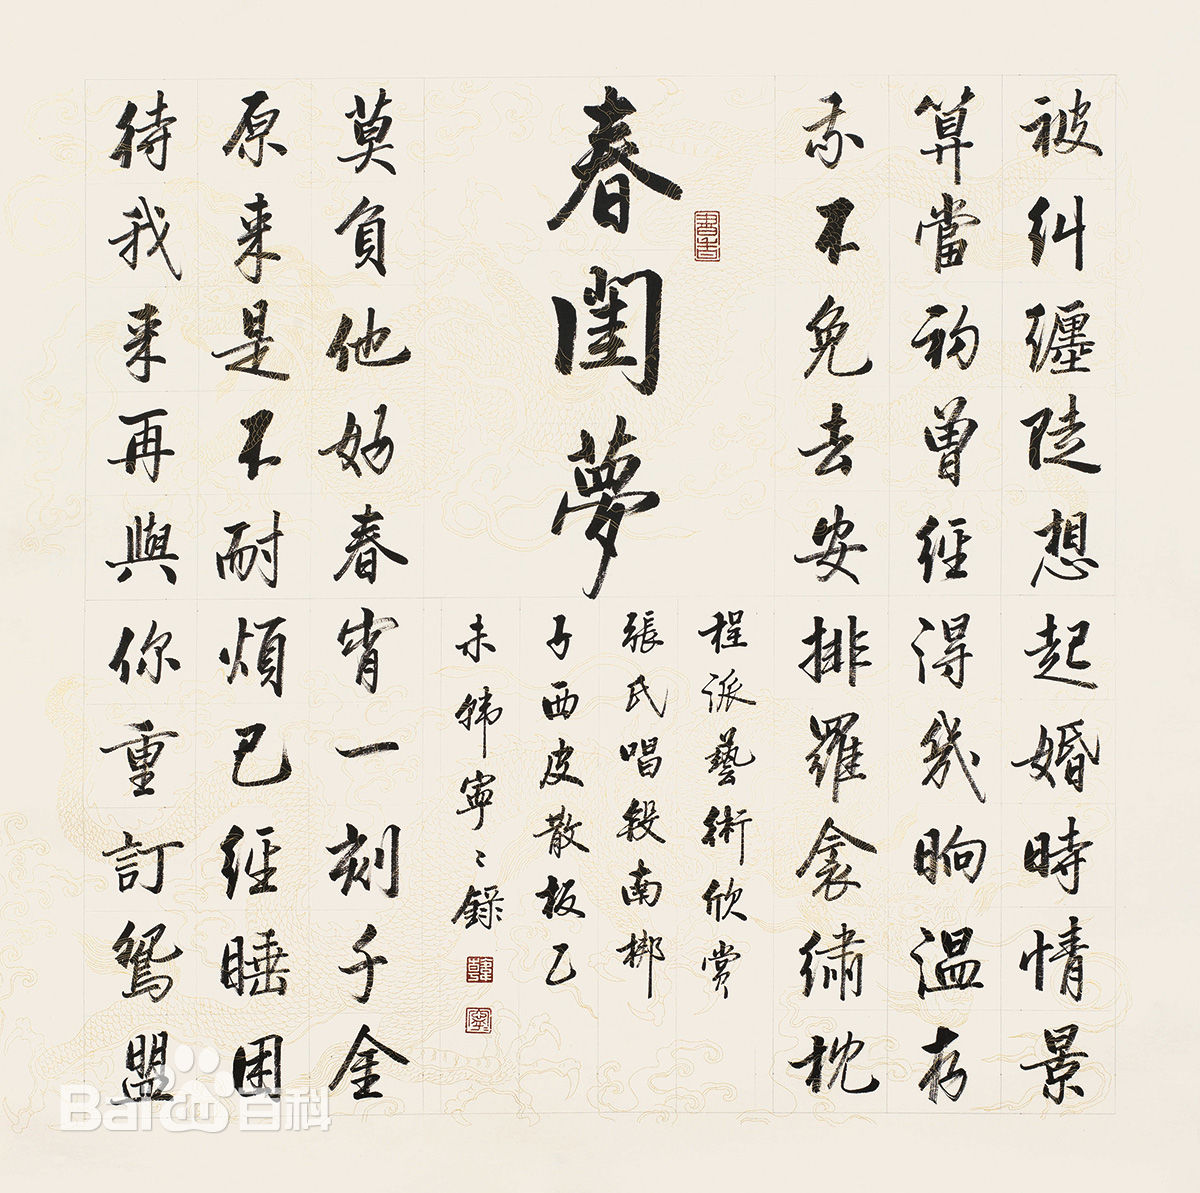 被糾纏陡想起婚時情景
算當初曾經得幾晌溫存
我不免去安排羅衾繡枕
春閨夢
程派藝術欣賞
張氏唱段南梆
子西皮散板乙
未韩寧〻錄
莫負他好春宵一刻千金
原来是不耐煩已經睡困
待我来再與你重訂鴛盟
Bai百科